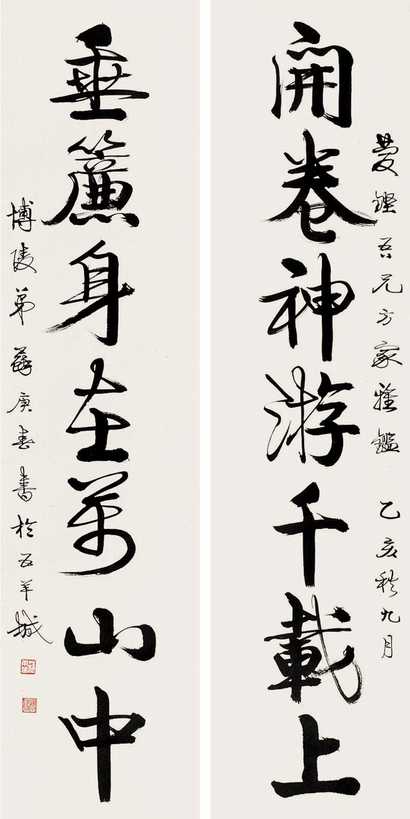 開卷神游千載上
垂簾身在萬山中
吾兄方家雅鑑 乙亥秋九月
博陵弟蘇庚春書於五羊城